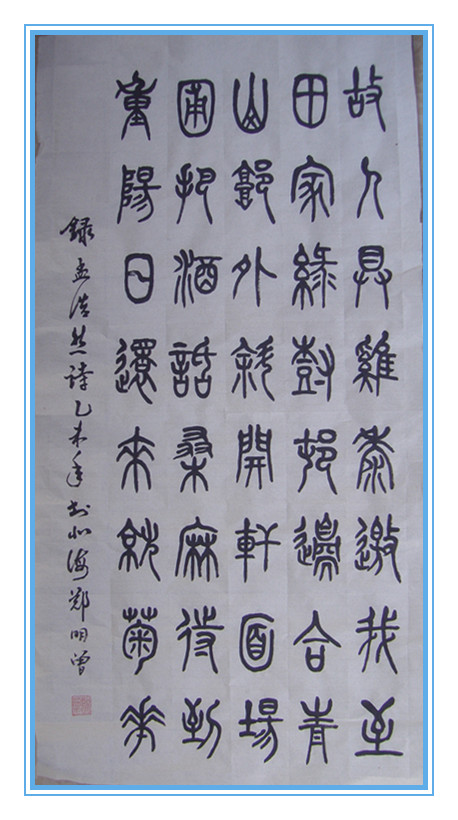 故人具雞黍邀我至
田家綠樹邨邊合青
山郭外斜開軒面場
圃把酒話桑麻待到
重陽日還來就菊花
錄孟浩然詩乙未年书北海郑明曾